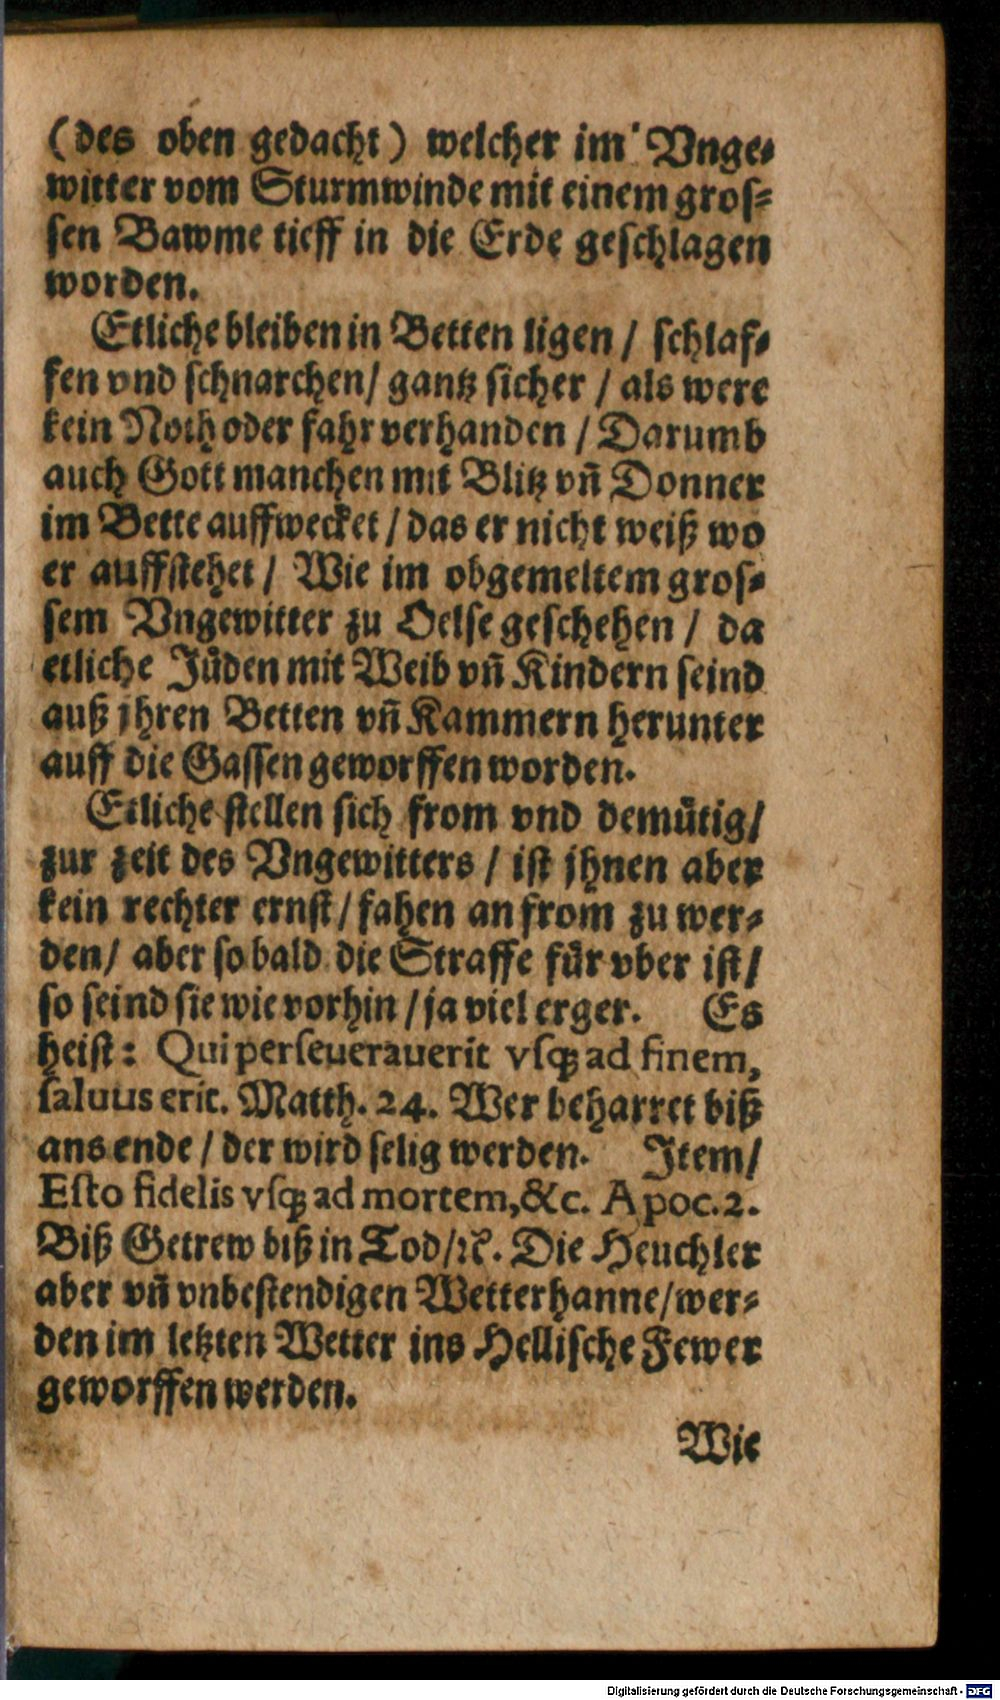 (des oben gedacht) welcher im Vnge-
witter vom Sturmwinde mit einem gros-
sen Bawme tieff in die Erde geschlagen
worden.
Etliche bleiben in Betten ligen / schlaf-
fen vnd schnarchen / gantz sicher / als were
kein Noth oder fahr verhanden / Darumb
auch Gott manchen mit Blitz vñ Donner
im Bette auffwecket / das er nicht weiß wo
er auffstehet / Wie im obgemeltem gros-
sem Vngewitter zu Oelse geschehen / da
etliche Jůden mit Weib vñ Kindern seind
auß jhren Betten vñ Kammern herunter
auff die Gassen geworffen worden.
Etliche stellen sich from vnd demůtig /
zur zeit des Vngewitters / ist jhnen aber
kein rechter ernst / fahen an from zu wer-
den / aber so bald die Straffe fůr vber ist /
so seind sie wie vorhin / ja viel erger. Es
heist: Qui perseuerauerit vsq; ad finem,
saluus erit. Matth. 24. Wer beharret biß
ans ende / der wird selig werden. Item /
Esto fidelis vsq; ad mortem, &c. Apoc. 2.
Biß Getrew biß in Tod / ꝛc. Die Heuchler
aber vñ vnbestendigen Wetterhanne / wer-
den im letzten Wetter ins Hellische Fewer
geworffen werden.
Wie
Digitalisierung gefördert durch die Deutsche Forschungsgemeinschaft - DFG